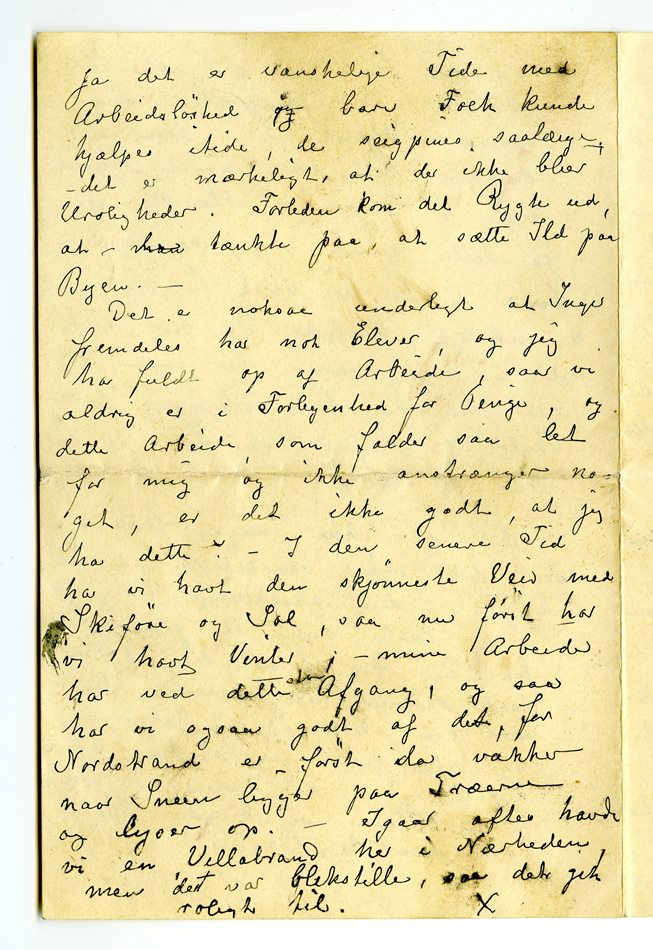 Ja det er vanskelige Tider med
Arbeidsløshed og bare Folk kunde
hjælpes itide, de
– det er mærkeligt, at der ikke blir
Uroligheder. Forleden kom det Rygte ud,
at – tænkte paa, at sætte Ild paa
Byen. –
Det er noksaa underligt at Inger
fremdeles har nok Elever, og jeg
har fuldt op af Arbeide, saa vi
aldrig er i Forlegenhed for Penge, og
dette Arbeide, som falder saa let
for mig og ikke anstrænger no-
get, er det ikke godt, at jeg
har dette? – I den senere Tid
har vi havt den skjønneste Veir med
Skiføre og Sol, saa nu först har
vi havt Vinter; – mine Arbeider
har ved dette stor Afgang, og saa
har vi ogsaa godt af det, for
Nordstrand er først da vakker
naar Sneen ligger paa Træerne
og lyser op. – Igaar aftes havde
vi en Villabrand her i Nærheden,
men det var blikstille, saa det gik
roligt til. X